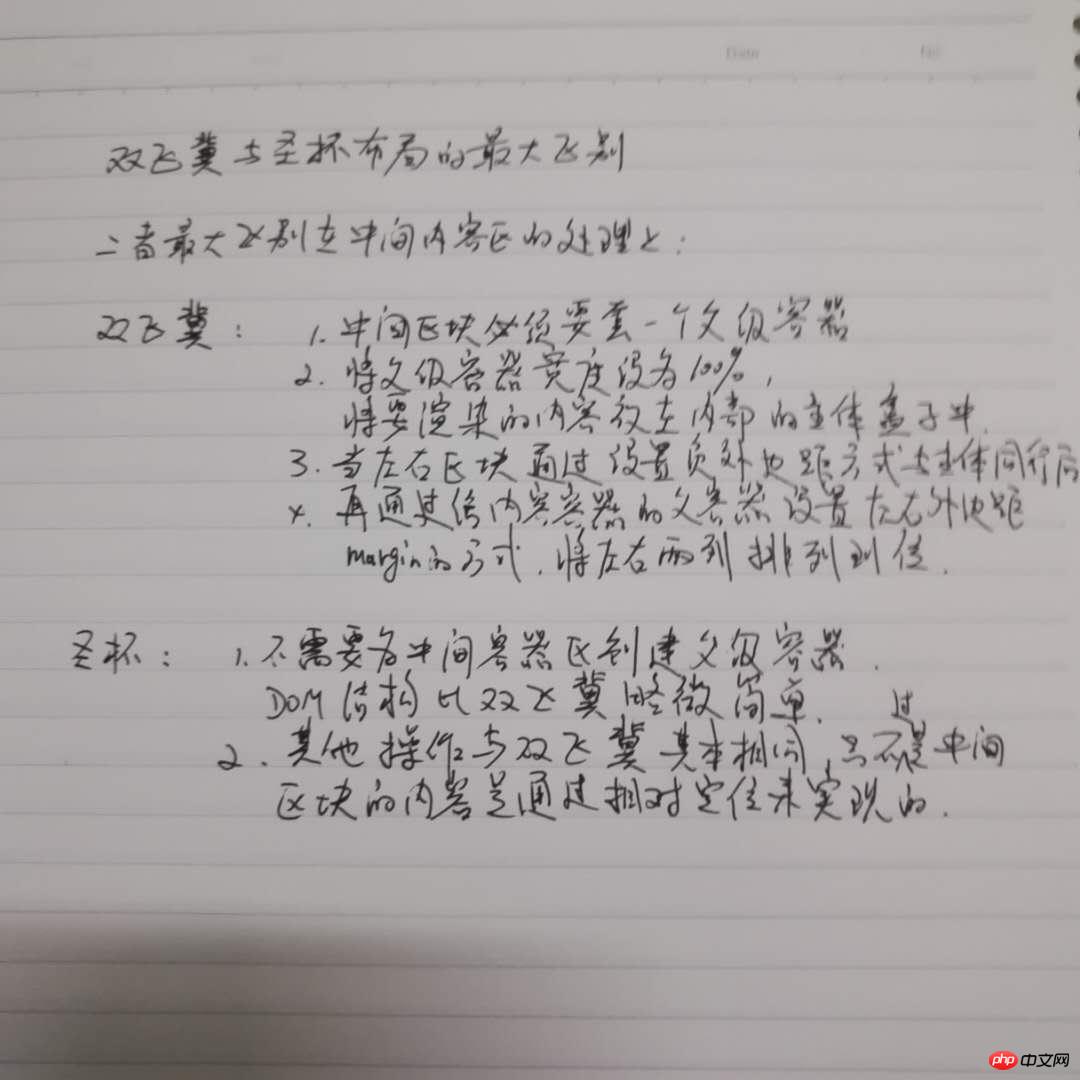 Date No.
双飞冀与圣杯布局的最大飞别
二者最大区别在中间内容区的处理上:
双飞冀: 1. 中间区块必须要套一个父级容器
2. 将父级容器宽度设为100%,
将要渲染的内容放在内部的主体盒子中.
3. 当左右区块通过设置负外边距方式与主体同行后
4. 再通过给内容容器的父容器设置左右外边距
margin的方式.将左右两列排列到位.
圣杯: 1. 不需要为中间容器区创建父级容器.
DOM结构比双飞冀略微简单.
2. 其他操作与双飞冀基本相同,只不过是中间
区块的内容是通过相对定位来实现的.
php 中文网